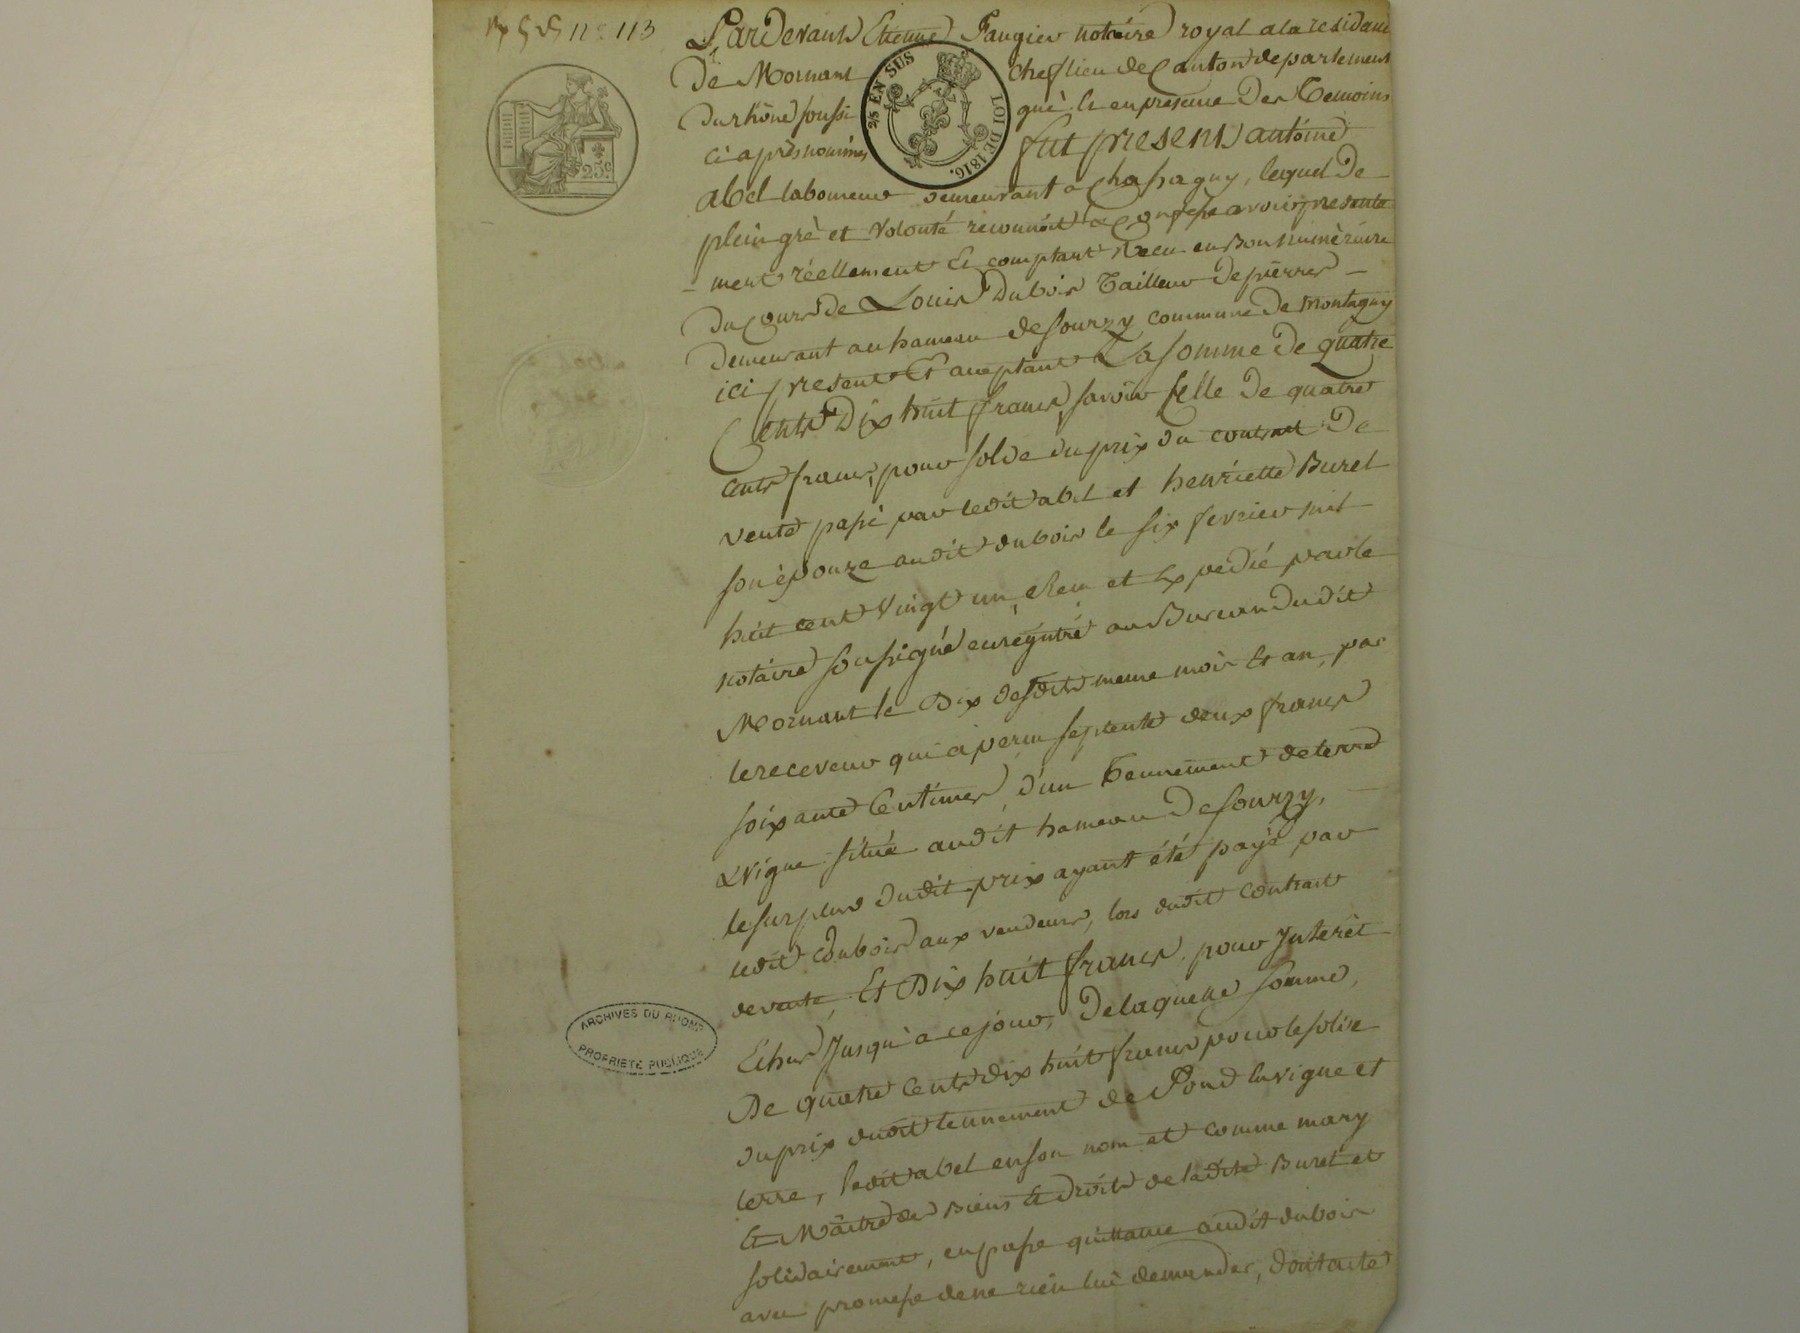 n° 113
Pardevant Etienne Faugier notaire royal a la residance
de Mornant chef lieu de Canton departement
du rhône soussi gné & en presence des Temoins
ci après nommés fut present antoine
abel laboureur demeurant a Chassagny, lequel de
plein gré et volonté reconnoit & confesse avoir presente
- ment réellement & comptant Recu en Bon numéraire
du Cours de Louis Dubois Tailleur de pierres -
demeurant au hameau de sourzy commune de Montagny
ici present & acceptant La somme de quatre
Cents Dix huit francs, savoir celle de quatre
cents francs, pour solde du prix du contrat de
vente passé par ledit abel et henriette Burel
son épouze audit dubois le six fevrier mil
huit cent vingt un, Recu et Expedié par le
notaire soussigné enrégistré au Bureau dudit
Mornant le Dix desdits meme mois & an, par
le receveur qui a perçu septente deux francs
soixante Centimes, d'un Tennement de terre
& vigne situé audit hameau De sourzy, -
le surplus dudit prix ayant été payé par
ledit dubois aux vendeurs, lors dudit contrat
de vente, Et Dix huit francs pour Interêt
Echus Jusqu'a ce jour, De laquelle somme,
De quatre Cents dix huit francs pour le solde
du prix dudit tennement de Fond la vigne et
terre, ledit abel en son nom et comme mary
& Maitre des Biens & droits de ladite Burel et
solidairement, en passe quittance audit dubois
avec promesse de ne rien lui demander, dont acte
25c
2/5 EN SUS
LOI DE 1816.
ARCHIVES DU RHONE
PROPRIETE PUBLIQUE